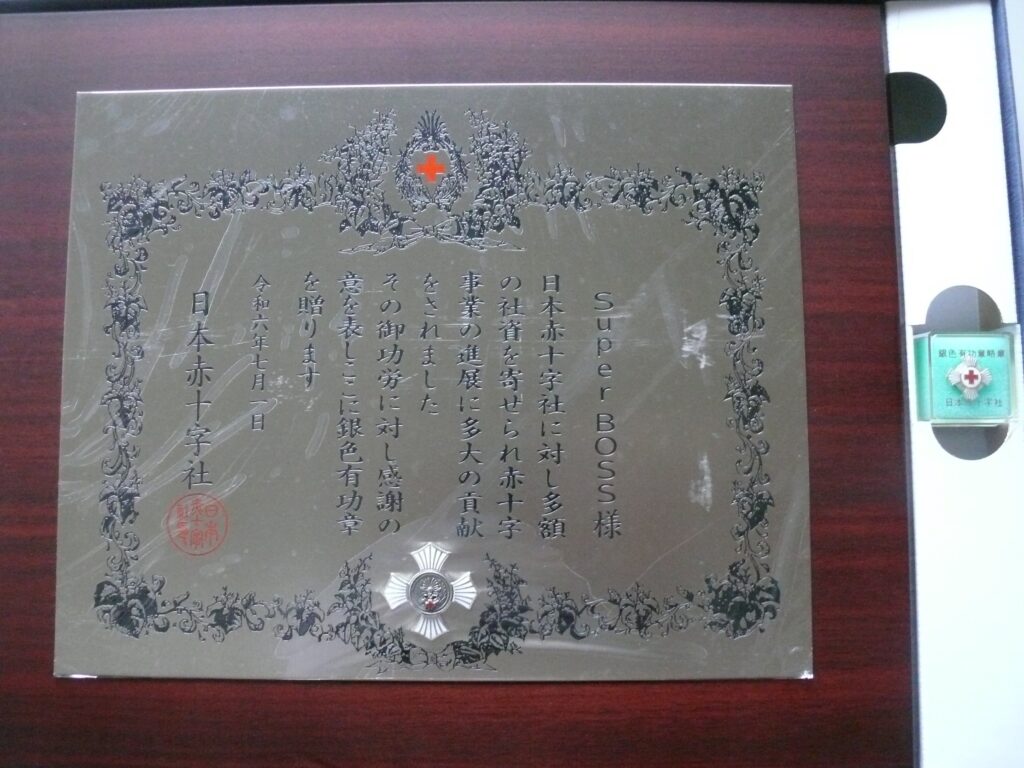 Super BOSS 様
日本赤十字社に対し多額
の社資を寄せられ赤十字
事業の進展に多大の貢献
をされました
その御功労に対し感謝の
意を表しここに銀色有功章
を贈ります
令和六年七月一日
日本赤十字社
銀色有功章略章
日本赤十字社